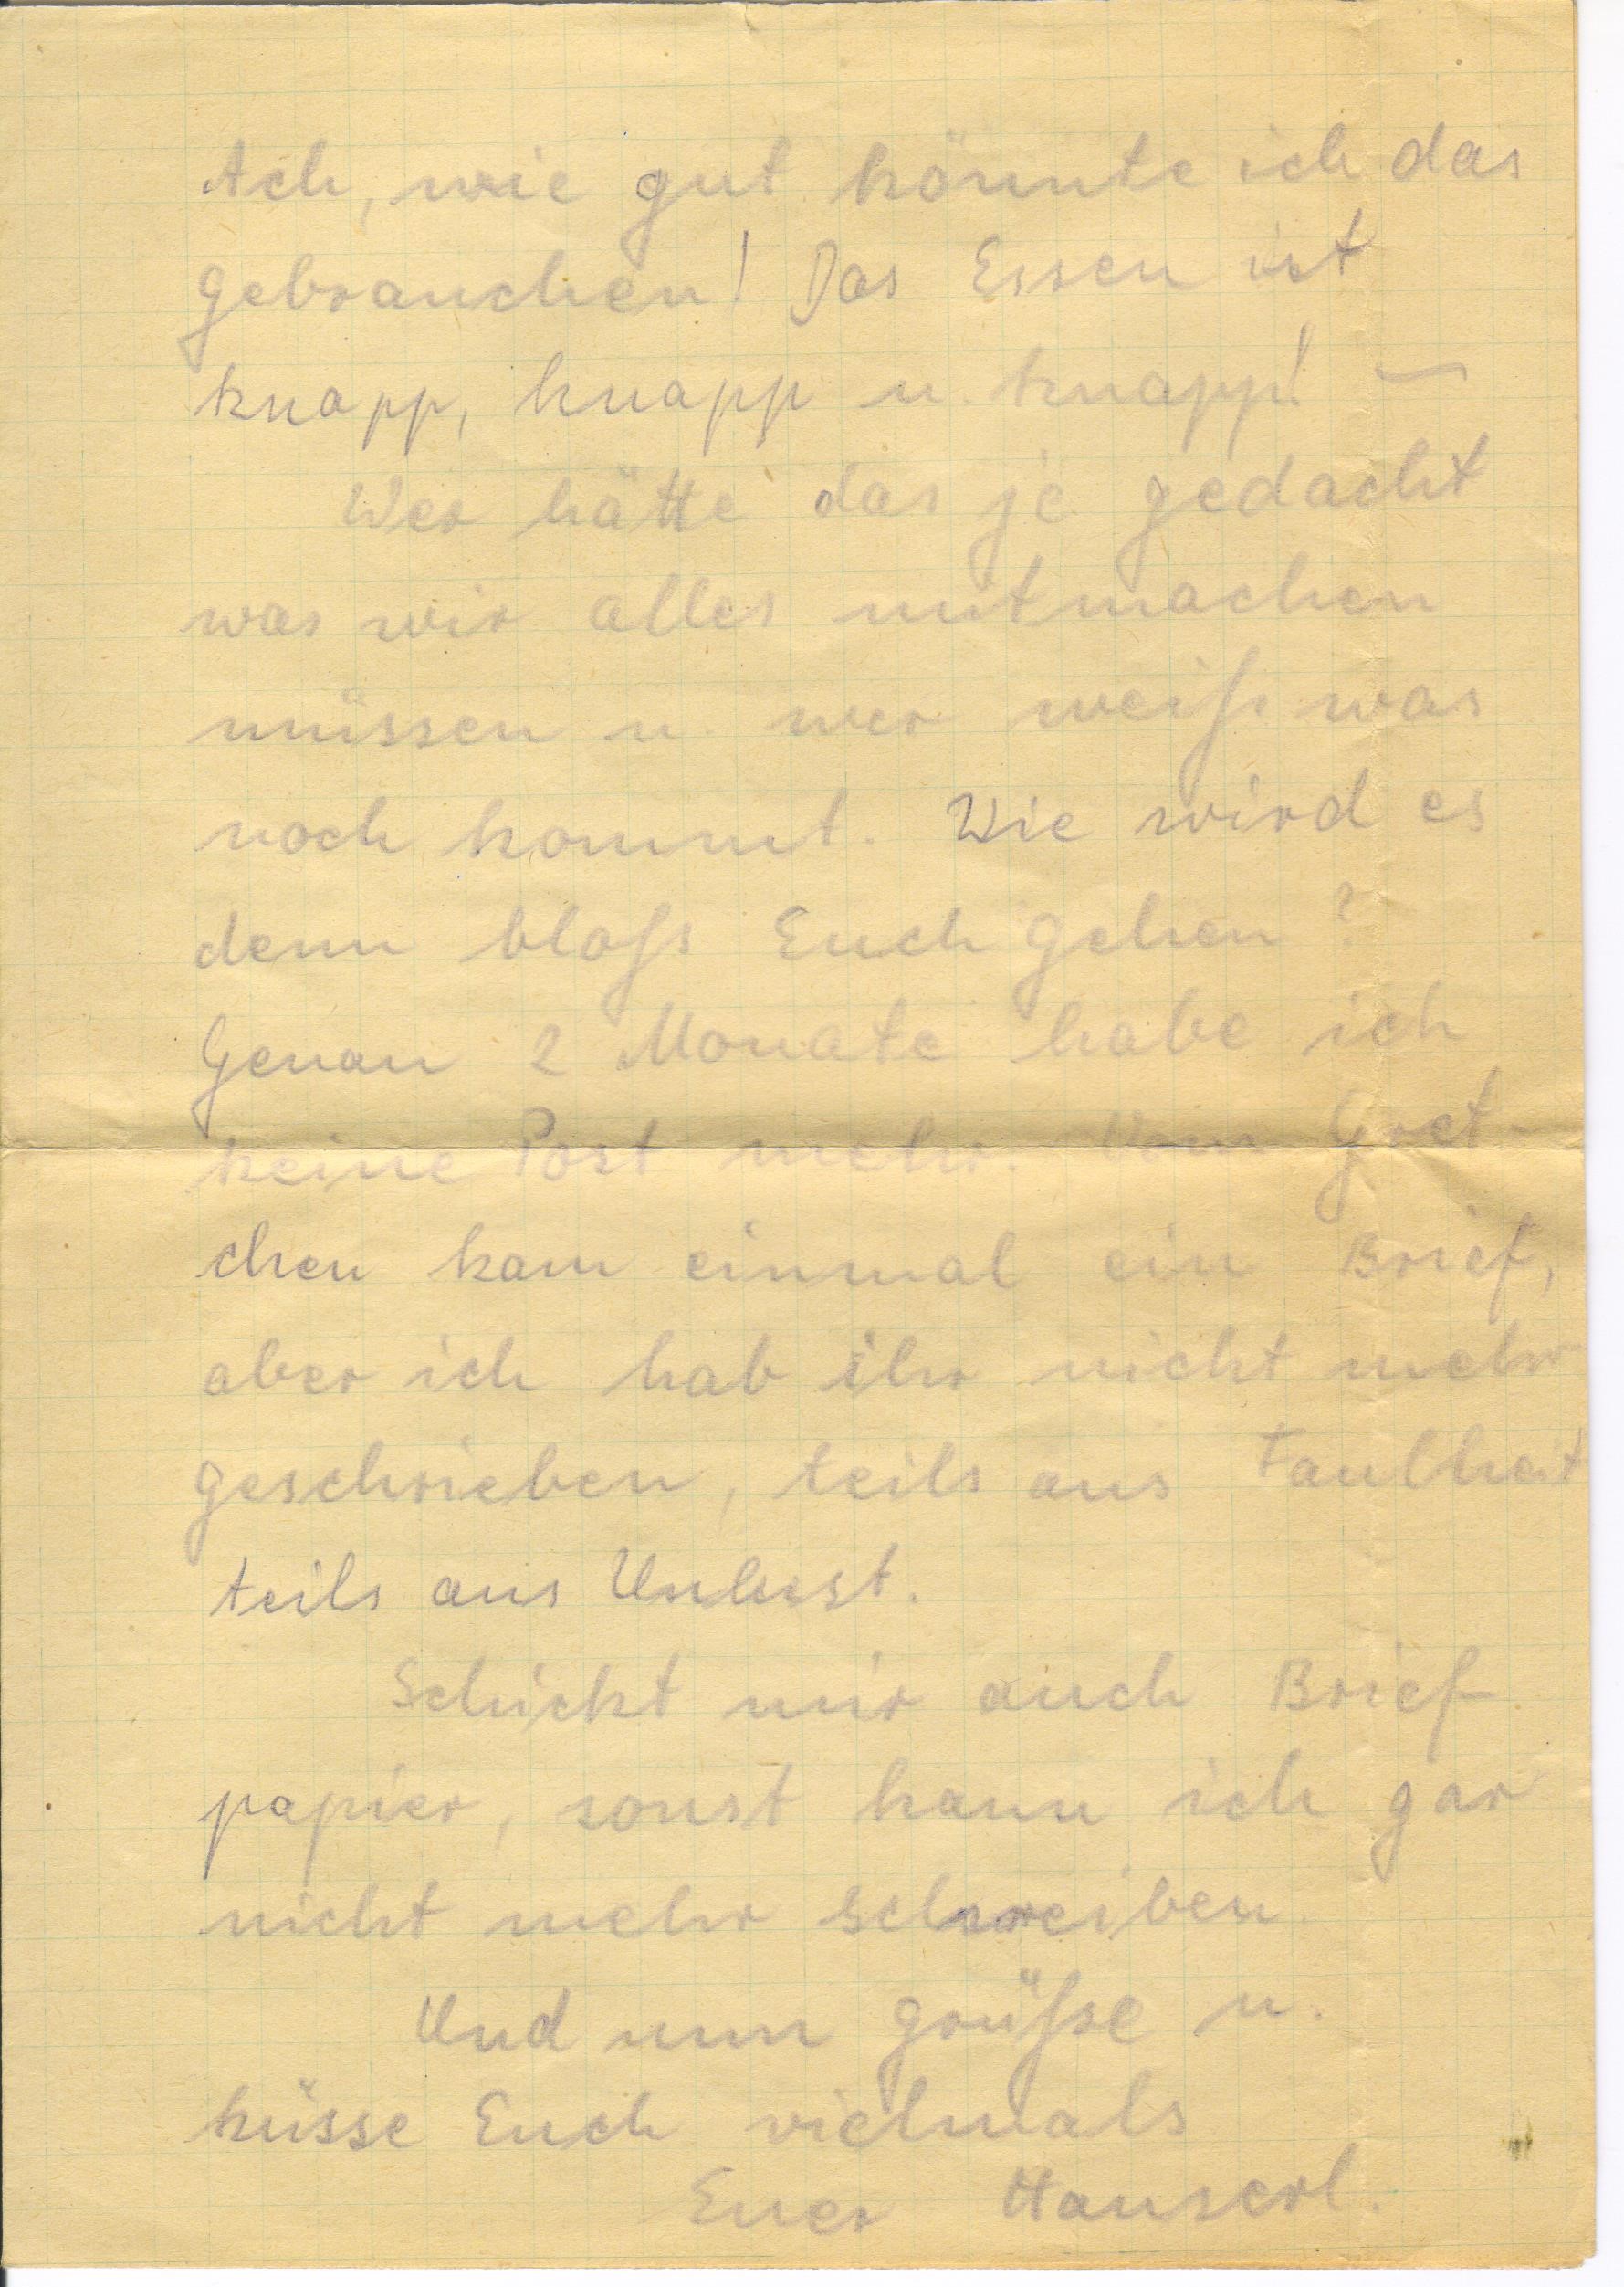 Ach, wie gut könnte ich das
gebrauchen! Das Essen ist
knapp, knapp u. knapp! —
Wer hätte das je gedacht
was wir alles mitmachen
müssen u. wer weiß was
noch kommt. Wie wird es
denn bloß Euch gehen?
Genau 2 Monate habe ich
keine Post mehr. Vom Gret-
chen kam einmal ein Brief,
aber ich hab ihr nicht mehr
geschrieben, teils aus Faulheit
teils aus Unlust.
Schickt mir auch Brief-
papier, sonst kann ich gar
nicht mehr schreiben.
Und nun grüße u.
küsse Euch vielmals
Euer Hanserl.